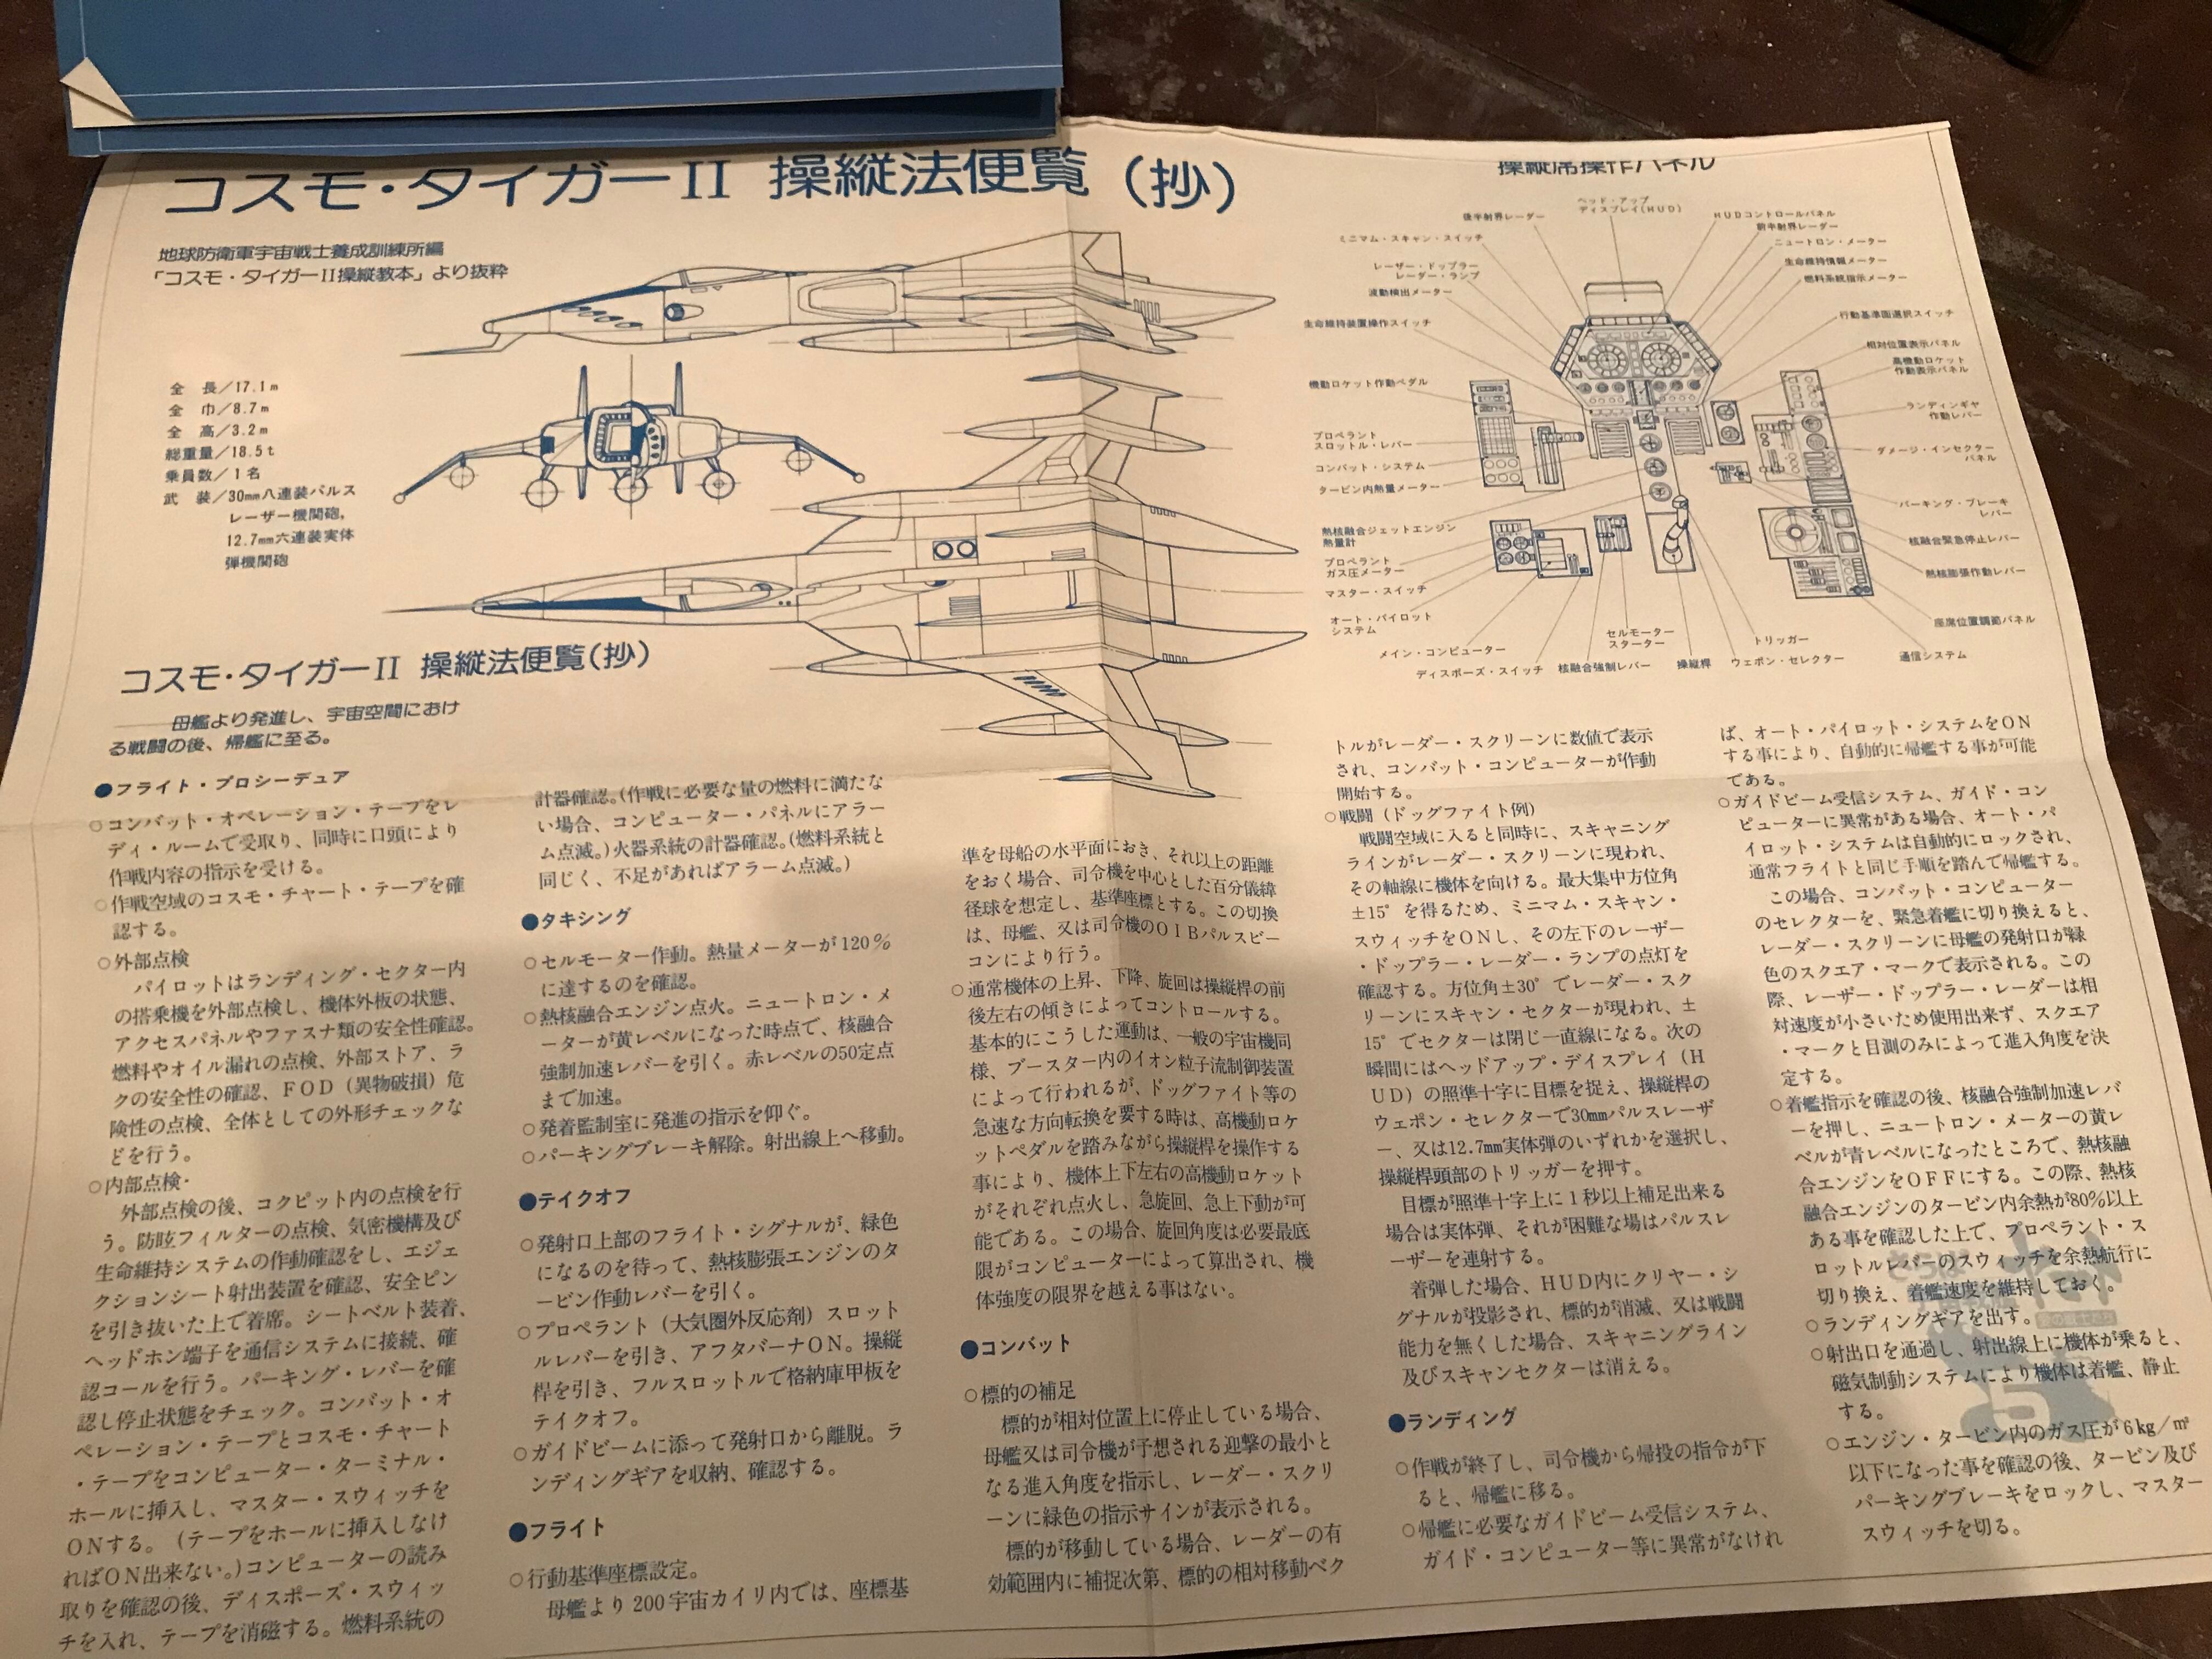 コスモ・タイガーII 操縦法便覧(抄)
地球防衛軍宇宙戦士養成訓練所編
「コスモ・タイガーII操縦教本」より抜粋
全 長/17.1m
全 巾/8.7m
全 高/3.2m
総重量/18.5t
乗員数/1名
武 装/30mm八連装パルス
レーザー機関砲,
12.7mm六連装実体
弾機関砲
操縦席操作パネル
ヘッド・アップ
ディスプレイ(HUD)
後半射界レーダー
ミニマム・スキャン・スイッチ
レーザー・ドップラー
レーダー・ランプ
波動検出メーター
生命維持装置操作スイッチ
機動ロケット作動ペダル
プロペラント
スロットル・レバー
コンバット・システム
タービン内熱量メーター
熱核融合ジェットエンジン
熱量計
プロペラント
ガス圧メーター
マスター・スイッチ
オート・パイロット
システム
メイン・コンピューター
ディスポーズ・スイッチ
核融合強制レバー
セルモーター
スターター
操縦桿
ウェポン・セレクター
トリッガー
HUDコントロールパネル
前半射界レーダー
ニュートロン・メーター
生命維持情報メーター
燃料系統指示メーター
行動基準面選択スイッチ
相対位置表示パネル
高機動ロケット
作動表示パネル
ランディンギヤ
作動レバー
ダメージ・インセクター
パネル
パーキング・ブレーキ
レバー
核融合緊急停止レバー
熱核膨張作動レバー
座席位置調節パネル
通信システム
コスモ・タイガーII 操縦法便覧(抄)
――母艦より発進し、宇宙空間におけ
る戦闘の後、帰艦に至る。
●フライト・プロシーデュア
○コンバット・オペレーション・テープをレ
ディ・ルームで受取り、同時に口頭により
作戦内容の指示を受ける。
○作戦空域のコスモ・チャート・テープを確
認する。
○外部点検
パイロットはランディング・セクター内
の搭乗機を外部点検し、機体外板の状態、
アクセスパネルやファスナ類の安全性確認。
燃料やオイル漏れの点検、外部ストア、ラ
クの安全性の確認、FOD(異物破損)危
険性の点検、全体としての外形チェックな
どを行う。
○内部点検・
外部点検の後、コクピット内の点検を行
う。防眩フィルターの点検、気密機構及び
生命維持システムの作動確認をし、エジェ
クションシート射出装置を確認、安全ピン
を引き抜いた上で着席。シートベルト装着、
ヘッドホン端子を通信システムに接続、確
認コールを行う。パーキング・レバーを確
認し停止状態をチェック。コンバット・オ
ペレーション・テープとコスモ・チャート
・テープをコンピューター・ターミナル・
ホールに挿入し、マスター・スウィッチを
ONする。(テープをホールに挿入しなけ
ればON出来ない。)コンピューターの読み
取りを確認の後、ディスポーズ・スウィッ
チを入れ、テープを消磁する。燃料系統の
計器確認。(作戦に必要な量の燃料に満たな
い場合、コンピューター・パネルにアラー
ム点滅。)火器系統の計器確認。(燃料系統と
同じく、不足があればアラーム点滅。)
●タキシング
○セルモーター作動。熱量メーターが120%
に達するのを確認。
○熱核融合エンジン点火。ニュートロン・メ
ーターが黄レベルになった時点で、核融合
強制加速レバーを引く。赤レベルの50定点
まで加速。
○発着監制室に発進の指示を仰ぐ。
○パーキングブレーキ解除。射出線上へ移動。
●テイクオフ
○発射口上部のフライト・シグナルが、緑色
になるのを待って、熱核膨張エンジンのタ
ービン作動レバーを引く。
○プロペラント(大気圏外反応剤)スロット
ルレバーを引き、アフタバーナON。操縦
桿を引き、フルスロットルで格納庫甲板を
テイクオフ。
○ガイドビームに添って発射口から離脱。ラ
ンディングギアを収納、確認する。
●フライト
○行動基準座標設定。
母艦より200宇宙カイリ内では、座標基
準を母船の水平面におき、それ以上の距離
をおく場合、司令機を中心とした百分儀緯
径球を想定し、基準座標とする。この切換
は、母艦、又は司令機のOIBパルスビー
コンにより行う。
○通常機体の上昇、下降、旋回は操縦桿の前
後左右の傾きによってコントロールする。
基本的にこうした運動は、一般の宇宙機同
様、ブースター内のイオン粒子流制御装置
によって行われるが、ドッグファイト等の
急速な方向転換を要する時は、高機動ロケ
ットペダルを踏みながら操縦桿を操作する
事により、機体上下左右の高機動ロケット
がそれぞれ点火し、急旋回、急上下動が可
能である。この場合、旋回角度は必要最底
限がコンピューターによって算出され、機
体強度の限界を越える事はない。
●コンバット
○標的の補足
標的が相対位置上に停止している場合、
母艦又は司令機が予想される迎撃の最小と
なる進入角度を指示し、レーダー・スクリ
ーンに緑色の指示サインが表示される。
標的が移動している場合、レーダーの有
効範囲内に補捉次第、標的の相対移動ベク
トルがレーダー・スクリーンに数値で表示
され、コンバット・コンピューターが作動
開始する。
○戦闘(ドッグファイト例)
戦闘空域に入ると同時に、スキャニング
ラインがレーダー・スクリーンに現われ、
その軸線に機体を向ける。最大集中方位角
±15°を得るため、ミニマム・スキャン・
スウィッチをONし、その左下のレーザー
・ドップラー・レーダー・ランプの点灯を
確認する。方位角±30°でレーダー・スク
リーンにスキャン・セクターが現われ、±
15°でセクターは閉じ一直線になる。次の
瞬間にはヘッドアップ・デイスプレイ(H
UD)の照準十字に目標を捉え、操縦桿の
ウェポン・セレクターで30mmパルスレーザ
ー、又は12.7mm実体弾のいずれかを選択し、
操縦桿頭部のトリッガーを押す。
目標が照準十字上に1秒以上補足出来る
場合は実体弾、それが困難な場はパルスレ
ーザーを連射する。
着弾した場合、HUD内にクリヤー・シ
グナルが投影され、標的が消滅、又は戦闘
能力を無くした場合、スキャニングライン
及びスキャンセクターは消える。
●ランディング
○作戦が終了し、司令機から帰投の指令が下
ると、帰艦に移る。
○帰艦に必要なガイドビーム受信システム、
ガイド・コンピューター等に異常がなけれ
ば、オート・パイロット・システムをON
する事により、自動的に帰艦する事が可能
である。
○ガイドビーム受信システム、ガイド・コン
ピューターに異常がある場合、オート・パ
イロット・システムは自動的にロックされ、
通常フライトと同じ手順を踏んで帰艦する。
この場合、コンバット・コンピューター
のセレクターを、緊急着艦に切り換えると、
レーダー・スクリーンに母艦の発射口が緑
色のスクエア・マークで表示される。この
際、レーザー・ドップラー・レーダーは相
対速度が小さいため使用出来ず、スクエア
・マークと目測のみによって進入角度を決
定する。
○着艦指示を確認の後、核融合強制加速レバ
ーを押し、ニュートロン・メーターの黄レ
ベルが青レベルになったところで、熱核融
合エンジンをOFFにする。この際、熱核
融合エンジンのタービン内余熱が80%以上
ある事を確認した上で、プロペラント・ス
ロットルレバーのスウィッチを余熱航行に
切り換え、着艦速度を維持しておく。
○ランディングギアを出す。
○射出口を通過し、射出線上に機体が乗ると、
磁気制動システムにより機体は着艦、静止
する。
○エンジン・タービン内のガス圧が6kg/㎡
以下になった事を確認の後、タービン及び
パーキングブレーキをロックし、マスター
スウィッチを切る。